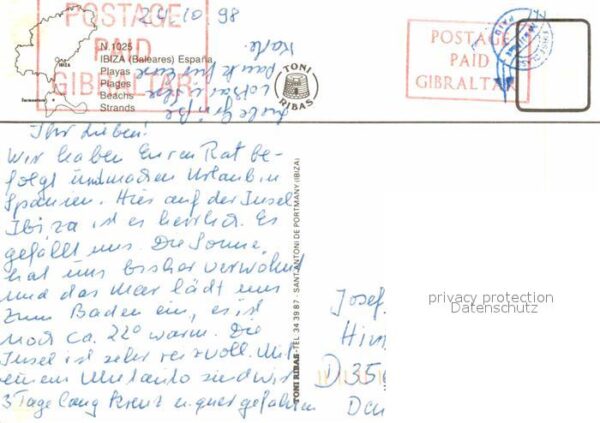 24.10.98
POSTAGE
PAID
GIBRALTAR
N.1025
IBIZA (Baleares) España
Playas
Plages
Beachs
Strands
TONI
RIBAS
POSTAGE
PAID
GIBRALTAR
Liebe Grüße
Dank für Eure
Karte.
Ihr Lieben!
Wir haben Euren Rat be-
folgt und machen Urlaub in
Spanien. Hier auf der Insel
Ibiza ist es herrlich. Es
gefällt uns. Die Sonne
hat uns bisher verwöhnt
und das Meer lädt uns
zum Baden ein, es ist
noch ca. 22° warm. Die
Insel ist sehr reizvoll. Mit
einem Mietauto sind wir
3 Tage lang kreuz u. quer gefahren
TONI RIBAS - TEL. 34 39 87 - SANT ANTONI DE PORTMANY (IBIZA)
Josef
D 35
privacy protection
Datenschutz